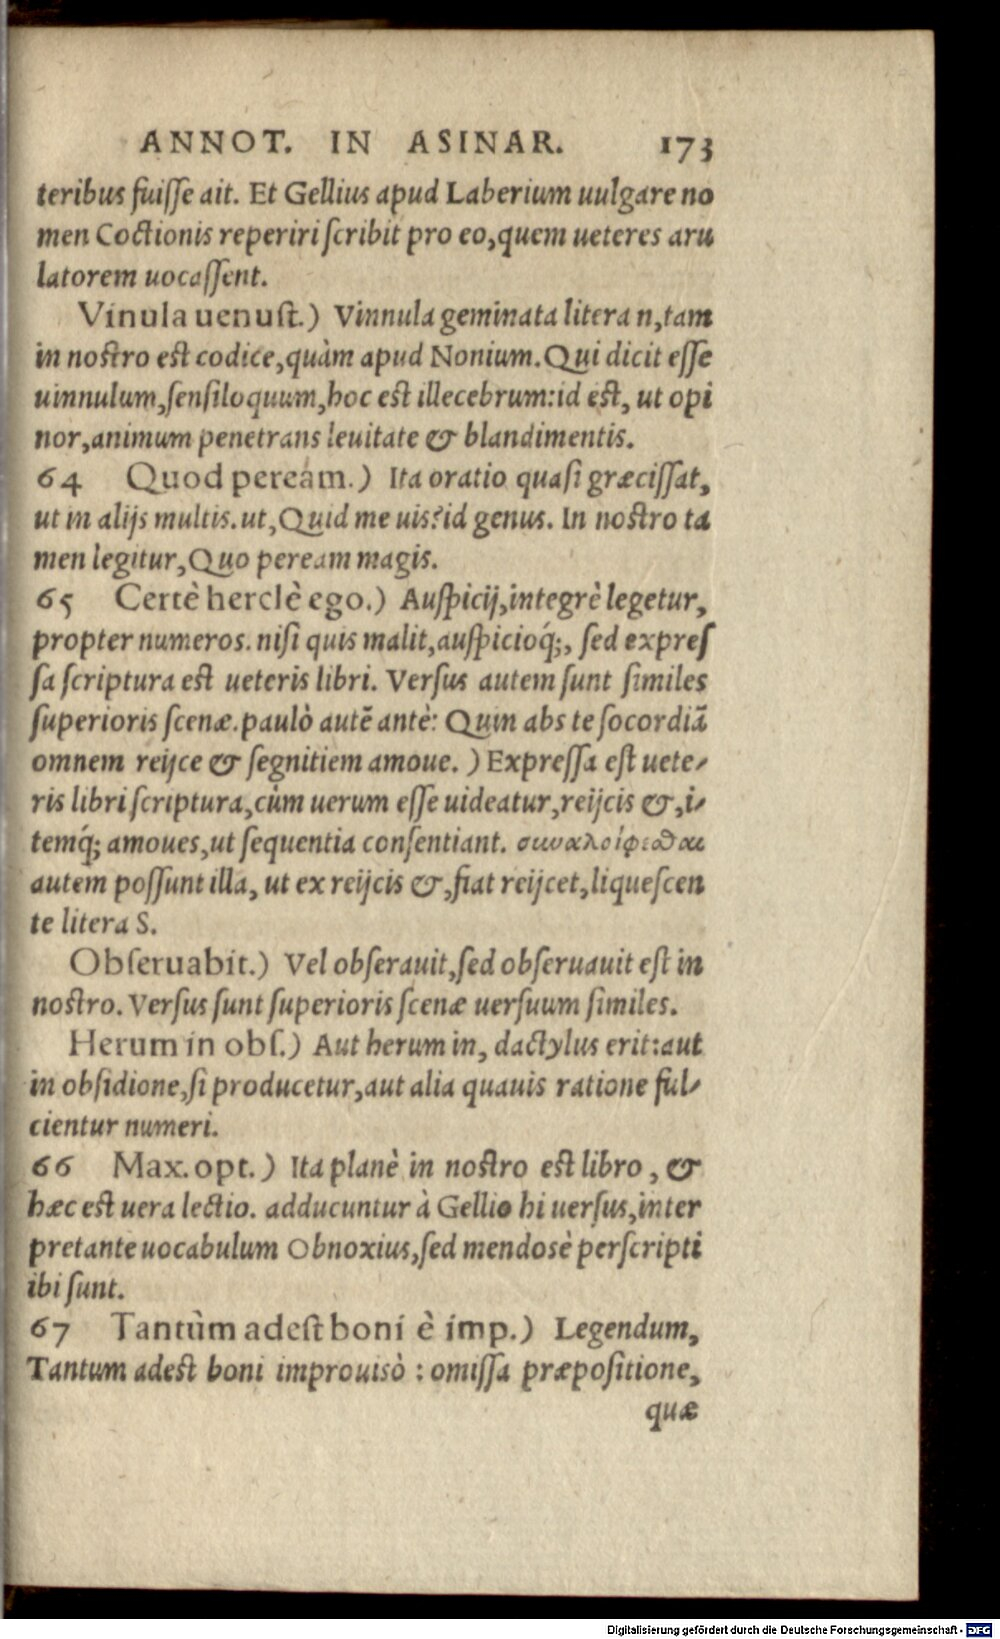 ANNOT. IN ASINAR. 173
teribus fuiſſe ait. Et Gellius apud Laberium uulgare no
men Coctionis reperiri ſcribit pro eo, quem ueteres aru
latorem uocaſſent.
Vinula uenuſt.) Vinnula geminata litera n, tam
in noſtro eſt codice, quàm apud Nonium. Qui dicit eſſe
uinnulum, ſenſiloquum, hoc eſt illecebrum: id eſt, ut opi
nor, animum penetrans leuitate & blandimentis.
64 Quod peream.) Ita oratio quaſi græciſſat,
ut in alijs multis. ut, Quid me uis? id genus. In noſtro ta
men legitur, Quo peream magis.
65 Certè herclè ego.) Auſpicij, integrè legetur,
propter numeros. niſi quis malit, auſpicioq́;, ſed expreſ
ſa ſcriptura eſt ueteris libri. Verſus autem ſunt ſimiles
ſuperioris ſcenæ. paulò autē antè: Quin abs te ſocordiā
omnem reijce & ſegnitiem amoue. ) Expreſſa eſt uete-
ris libri ſcriptura, cùm uerum eſſe uideatur, reijcis &, i-
temq́; amoues, ut ſequentia conſentiant. συναλοίφεσθαι
autem poſſunt illa, ut ex reijcis &, fiat reijcet, liqueſcen
te litera S.
Obſeruabit.) Vel obſerauit, ſed obſeruauit eſt in
noſtro. Verſus ſunt ſuperioris ſcenæ uerſuum ſimiles.
Herum in obſ.) Aut herum in, dactylus erit: aut
in obſidione, ſi producetur, aut alia quauis ratione ful-
cientur numeri.
66 Max. opt.) Ita planè in noſtro eſt libro, &
hæc eſt uera lectio. adducuntur à Gellio hi uerſus, inter
pretante uocabulum Obnoxius, ſed mendosè perſcripti
ibi ſunt.
67 Tantùm adeſt boni è imp.) Legendum,
Tantum adeſt boni improuisò : omiſſa præpoſitione,
quæ
Digitalisierung gefördert durch die Deutsche Forschungsgemeinschaft - DFG